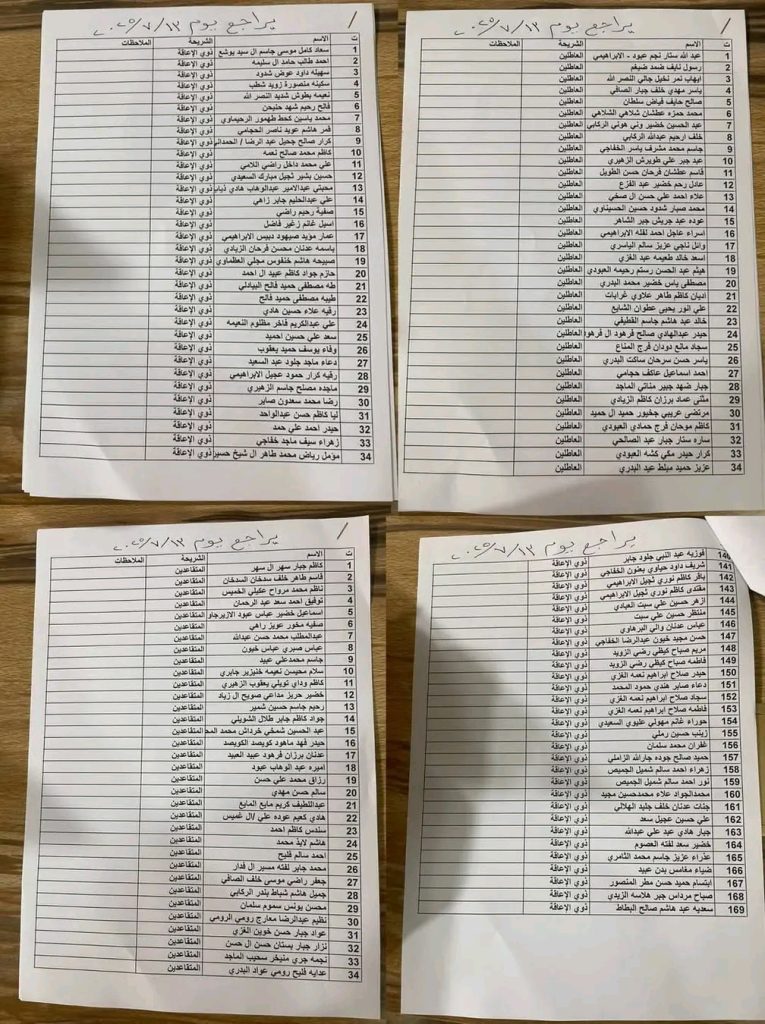 يراجع يوم ٢٠٢٥/٧/١٣
ت الاسم الشريحة الملاحظات
1 سعاد كامل موسى جاسم ال سيد يوشع ذوي الإعاقة
2 احمد طالب حامد ال سليمه ذوي الإعاقة
3 سهيله داود عوض شدود ذوي الإعاقة
4 سكينه منصورة زويد شطب ذوي الإعاقة
5 نعيمه بطوش شديد النصر الله ذوي الإعاقة
6 فالح رحيم شهد حليحن ذوي الإعاقة
7 محمد ياسين كحط طهمور الرحيماوي ذوي الإعاقة
8 قمر هاشم عويد ناصر الحجامي ذوي الإعاقة
9 كرار صالح جحيل عبد الرضا / الحمداني ذوي الإعاقة
10 كاظم محمد صالح نعمه ذوي الإعاقة
11 علي محمد داخل راضي اللامي ذوي الإعاقة
12 حسين بشير ثجيل مبارك السعيدي ذوي الإعاقة
13 مجبتي عبدالامير عبدالوهاب هادي ذياب ذوي الإعاقة
14 علي عبدالحليم جابر زاهي ذوي الإعاقة
15 صفية رحيم راضي ذوي الإعاقة
16 اسيل غانم زغير فاضل ذوي الإعاقة
17 عمار مؤيد صيهود دبيس الابراهيمي ذوي الإعاقة
18 باسمه عدنان محسن فرحان الزيادي ذوي الإعاقة
19 صبيحه هاشم خنفوس مجلي العظماوي ذوي الإعاقة
20 حازم جواد كاظم عبيد ال احمد ذوي الإعاقة
21 طه مصطفى حميد فالح البيادلي ذوي الإعاقة
22 طيبه مصطفى حميد فالح ذوي الإعاقة
23 رقيه علاء حسين هادي ذوي الإعاقة
24 علي عبدالكريم فاخر مظلوم النعيمه ذوي الإعاقة
25 سعد علي حسين احميد ذوي الإعاقة
26 وفاء يوسف حميد يعقوب ذوي الإعاقة
27 دعاء ماجد جلود عبد السعيد ذوي الإعاقة
28 رقيه كرار حمود عجيل الابراهيمي ذوي الإعاقة
29 ماجده مصلح جاسم الزهيري ذوي الإعاقة
30 رضا محمد سعدون صابر ذوي الإعاقة
31 ليا كاظم حسن عبدالواحد ذوي الإعاقة
32 حيدر احمد علي حمد ذوي الإعاقة
33 زهراء سيف ماجد خفاجي ذوي الإعاقة
34 مؤمل رياض محمد طاهر ال شيخ حسين ذوي الإعاقة
يراجع يوم ٢٠٢٥/٧/١٣
ت الاسم الشريحة الملاحظات
1 عبد الله ستار نجم عبود - الابراهيمي العاطلين
2 رسول نايف ضمد ضيغم العاطلين
3 ايهاب نمر نخيل جالي النصر الله العاطلين
4 ياسر مهدي خلف جبار الصافي العاطلين
5 صالح حايف فياض سلطان العاطلين
6 محمد حمزه عطشان شلاهي الشلاهي العاطلين
7 عبد الحسين خضير وني هوني الركابي العاطلين
8 خلف ارحيم عبدالله الركابي العاطلين
9 جاسم محمد مشرف ياسر الخفاجي العاطلين
10 عبد جبر علي طويرش الزهيري العاطلين
11 قاسم عطشان فرحان حسن الطويل العاطلين
12 عادل رحم خضير عبد الفزع العاطلين
13 علاء احمد علي حسن ال صخي العاطلين
14 محمد صبار شدود حسين الحسيناوي العاطلين
15 عوده عبد جريش جبر الشاهر العاطلين
16 اسراء عاجل احمد لفته الابراهيمي العاطلين
17 وائل ناجي عزيز سالم الياسري العاطلين
18 اسعد خالد طعيمه عبد الغزي العاطلين
19 هيثم عبد الحسن رستم رحيمه العبودي العاطلين
20 مصطفى ياس خضير محمد البدري العاطلين
21 اديان كاظم طاهر علاوي غرابات العاطلين
22 علي انور يحيى عطوان الشايع العاطلين
23 خالد عبد هاشم جاسم القطيفي العاطلين
24 حيدر عبدالهادي صالح فرهود ال فرهود العاطلين
25 سجاد مانع دودان فرج المناع العاطلين
26 ياسر حسن سرحان ساكت البدري العاطلين
27 احمد اسماعيل عاكف حجامي العاطلين
28 جبار ضهد جبير مناتي الماجد العاطلين
29 مثنى عماد برزان كاظم الزيادي العاطلين
30 مرتضى عريبي جخيور حميد ال حميد العاطلين
31 كاظم موحان فرج حمادي العبودي العاطلين
32 ساره ستار جبار عبد الصالحي العاطلين
33 كرار حيدر مكي كشه العبودي العاطلين
34 عزيز حميد مبلط عبد البدري العاطلين
يراجع يوم ٢٠٢٥/٧/١٣
ت الاسم الشريحة الملاحظات
1 كاظم جبار سهر ال سهر المتقاعدين
2 قاسم طاهر خلف سدخان السدخان المتقاعدين
3 ناظم محمد مرواح عكيلي الخميس المتقاعدين
4 توفيق احمد سعد عبد الرحمان المتقاعدين
5 اسماعيل خضير عباس عبود الازيرجاوي المتقاعدين
6 صفيه مخور عويز راهي المتقاعدين
7 عبدالمطلب محمد حسن عبدالله المتقاعدين
8 عباس صبري عباس خيون المتقاعدين
9 جاسم محمدعلي عبيد المتقاعدين
10 سلام محيسن نعيمه خنيزير جابري المتقاعدين
11 كاظم وداي تويلي يعقوب الزهيري المتقاعدين
12 خضير حريز مداعي صويح ال زياد المتقاعدين
13 رحيم جاسم حسين شمير المتقاعدين
14 جواد كاظم جابر طلال الشويلي المتقاعدين
15 عبد الحسين شمخي خرداش محمد المحمد المتقاعدين
16 حيدر فهد ماهود كويصد الكويصد المتقاعدين
17 عدنان برزان فرهود عبيد العبيد المتقاعدين
18 اميره عبد الوهاب عبود المتقاعدين
19 رزاق محمد علي حسن المتقاعدين
20 سالم حسن مهدي المتقاعدين
21 عبداللطيف كريم مايع المايع المتقاعدين
22 هادي كعيم عوده علي /ال غميس المتقاعدين
23 سندس كاظم احمد المتقاعدين
24 هاشم لابذ محمد المتقاعدين
25 احمد سالم فليح المتقاعدين
26 محمد جابر لفته مسير ال فدار المتقاعدين
27 جعفر راضي موسى خلف الصافي المتقاعدين
28 جميل هاشم شباط بندر الركابي المتقاعدين
29 محسن يونس سموم سلمان المتقاعدين
30 نظيم عبدالرضا معارج رومي الرومي المتقاعدين
31 عواد جبار حسن خوين الغزي المتقاعدين
32 نزار جبار بستان حسن ال حسن المتقاعدين
33 نجمه جري منيخر سحيب الماجد المتقاعدين
34 عدايه فليح رومي عواد البدري المتقاعدين
يراجع يوم ٢٠٢٥/٧/١٣
140 فوزيه عبد النبي جلود جابر ذوي الإعاقة
141 شريف داود حياوي بعنون الخفاجي ذوي الإعاقة
142 باقر كاظم نوري ثجيل الابراهيمي ذوي الإعاقة
143 مقتدى كاظم نوري ثجيل الابراهيمي ذوي الإعاقة
144 ازهر حسين علي سبت العبادي ذوي الإعاقة
145 منتظر حسين علي سبت ذوي الإعاقة
146 عباس عدنان والي البرهاوي ذوي الإعاقة
147 حسن مجيد خيون عبدالرضا الخفاجي ذوي الإعاقة
148 مريم صباح كيظي رضي الزويد ذوي الإعاقة
149 فاطمه صباح كيظي رضي الزويد ذوي الإعاقة
150 حيدر صلاح ابراهيم نعمه الغزي ذوي الإعاقة
151 دعاء صابر هندي حمود المحمد ذوي الإعاقة
152 سجاد صلاح ابراهيم نعمه الغزي ذوي الإعاقة
153 فاطمه صلاح ابراهيم نعمه الغزي ذوي الإعاقة
154 حوراء غانم مهولي عليوي السعيدي ذوي الإعاقة
155 زينب حسين رملي ذوي الإعاقة
156 غفران محمد سلمان ذوي الإعاقة
157 حميد صالح جوده جارالله الزاملي ذوي الإعاقة
158 زهراء احمد سالم شميل الجميص ذوي الإعاقة
159 نور احمد سالم شميل الجميص ذوي الإعاقة
160 محمدالجواد علاء محمدحسين مجيد ذوي الإعاقة
161 جنات عدنان خلف جليد الهلالي ذوي الإعاقة
162 علي حسين عجيل سعد ذوي الإعاقة
163 جبار هادي عبد علي عبدالله ذوي الإعاقة
164 خضير سعد لفته العصوم ذوي الإعاقة
165 عذراء عزيز جاسم محمد الثامري ذوي الإعاقة
166 ضياء مغامس بدن عبيد ذوي الإعاقة
167 ابتسام حميد حسن مطر المنصور ذوي الإعاقة
168 صباح مرداس جبر هلاسه الزيدي ذوي الإعاقة
169 سعديه عبد هاشم صالح البطاط ذوي الإعاقة